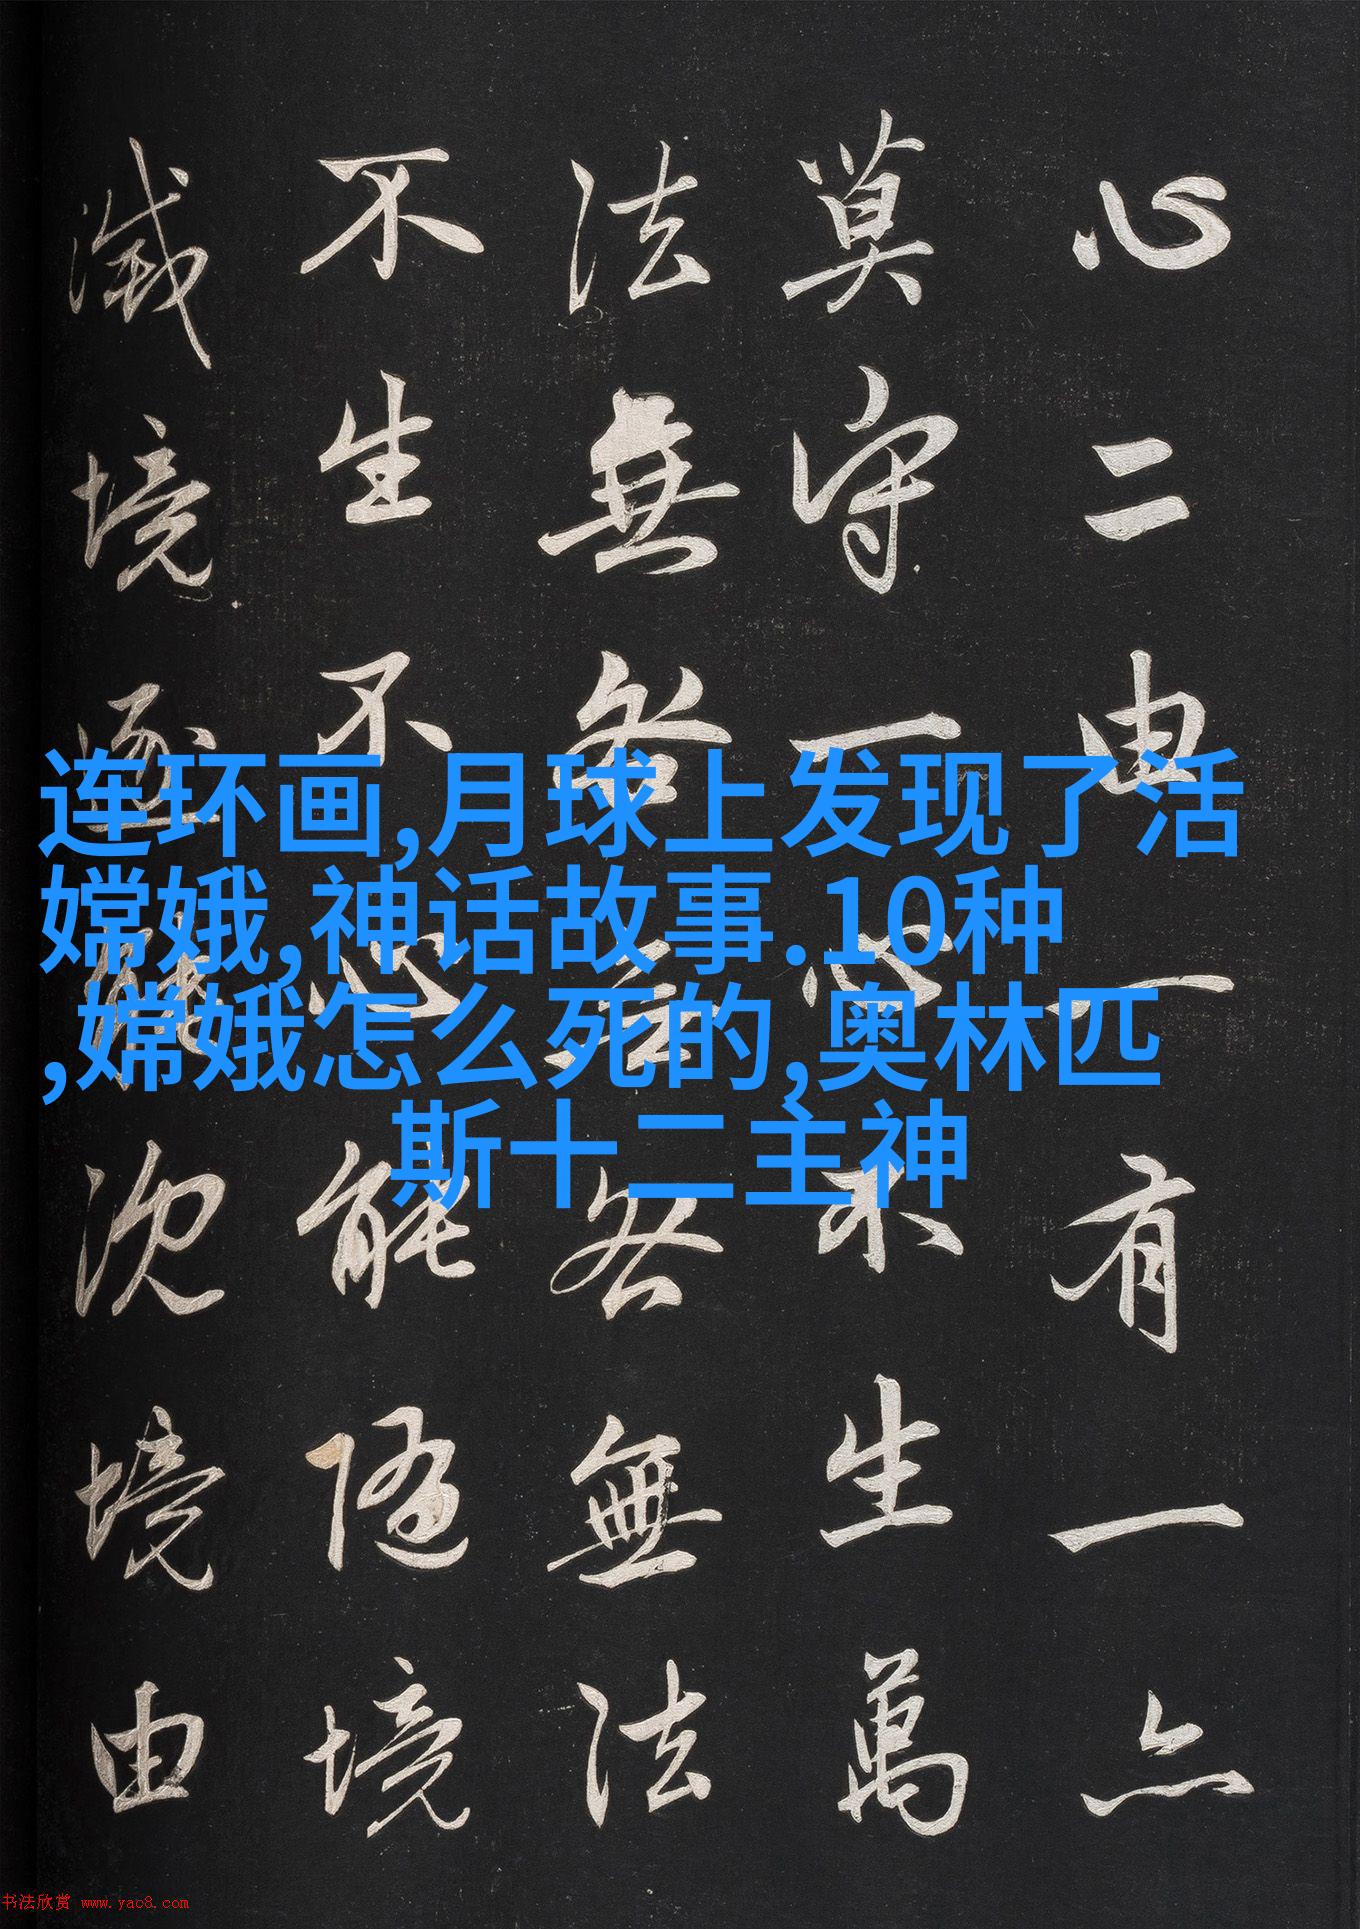 心二由一有一亦
莫守一心不生萬
法無咎無咎無法
不生不心能隨境
滅境逐能沈境由
连环画,月球上发现了活
嫦娥,神话故事.10种
,嫦娥怎么死的,奥林匹
斯十二主神
书法欣赏 www.yac8.com